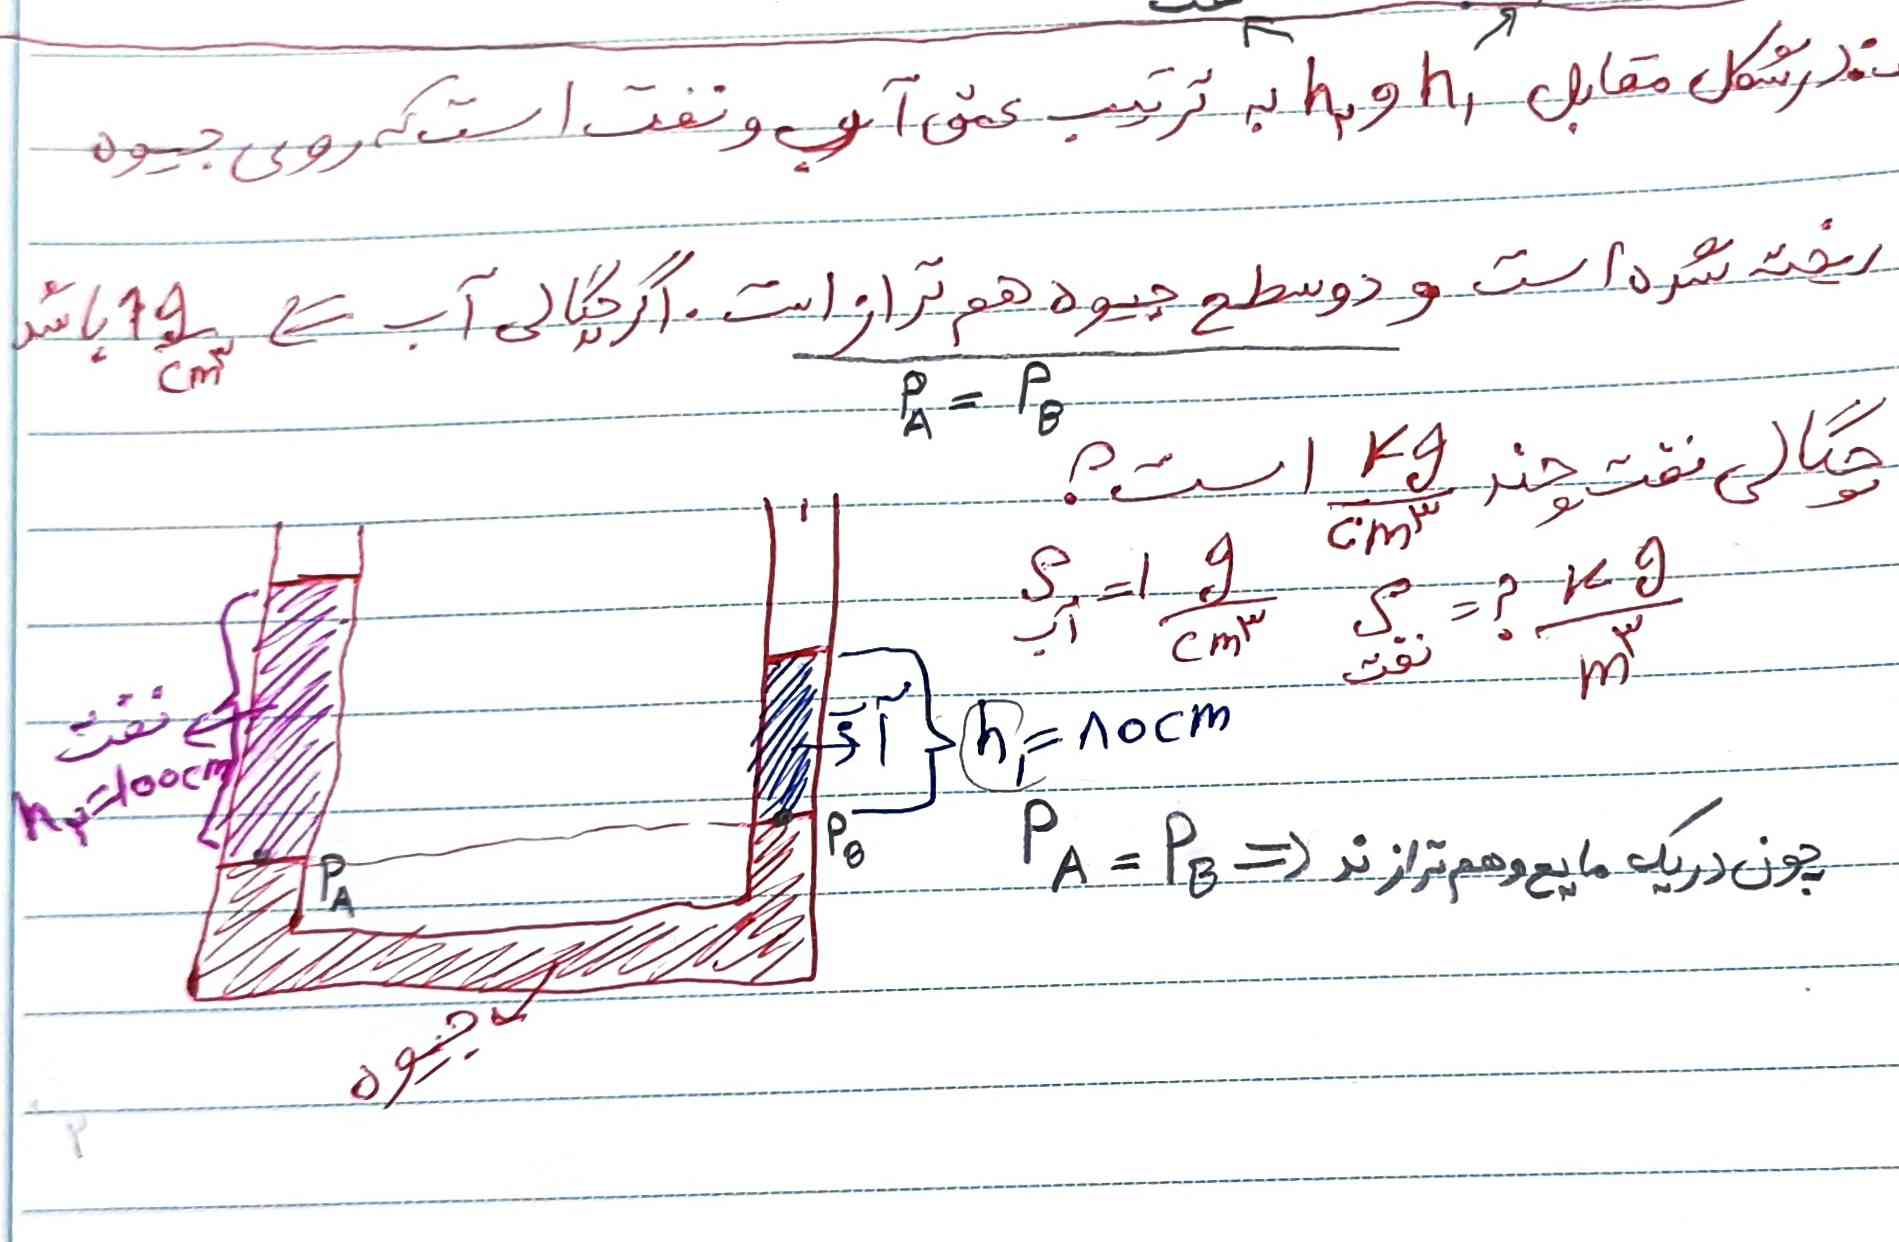 درشکل مقابل h₁ و h₂ به ترتیب عمق آب و نفت است که روی جیوه
ریخته شده است و دوسطح جیوه هم تراز است. اگر چگالی آب 1 g/cm³ باشد
P_A = P_B
چگالی نفت چند kg/cm³ است؟
ρ آب = 1 g/cm³ ρ نفت = ? kg/m³
نفت
h₂ = 100cm
آب
h₁ = ۸0cm
P_A
P_B
P_A = P_B ⇒ چون در یک مایع و هم ترازند
جیوه